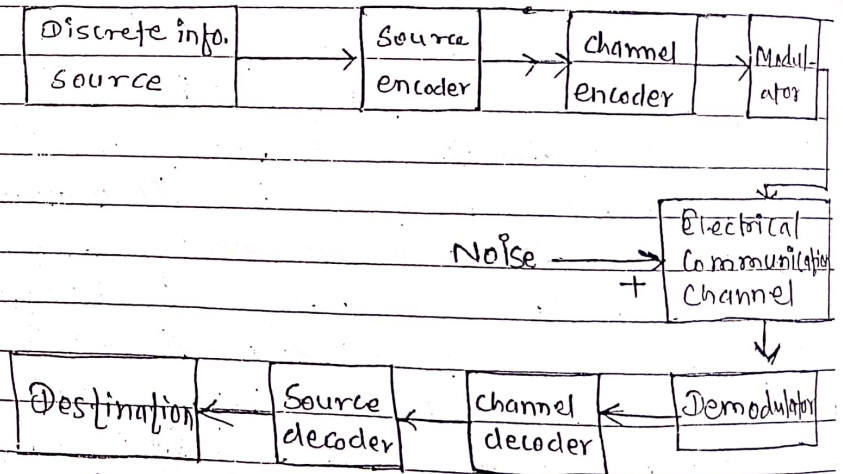 Discrete info.
source
Source
encoder
channel
encoder
Modul-
ator
Noise
+
Electrical
Communication
Channel
Demodulator
channel
decoder
Source
decoder
Destination